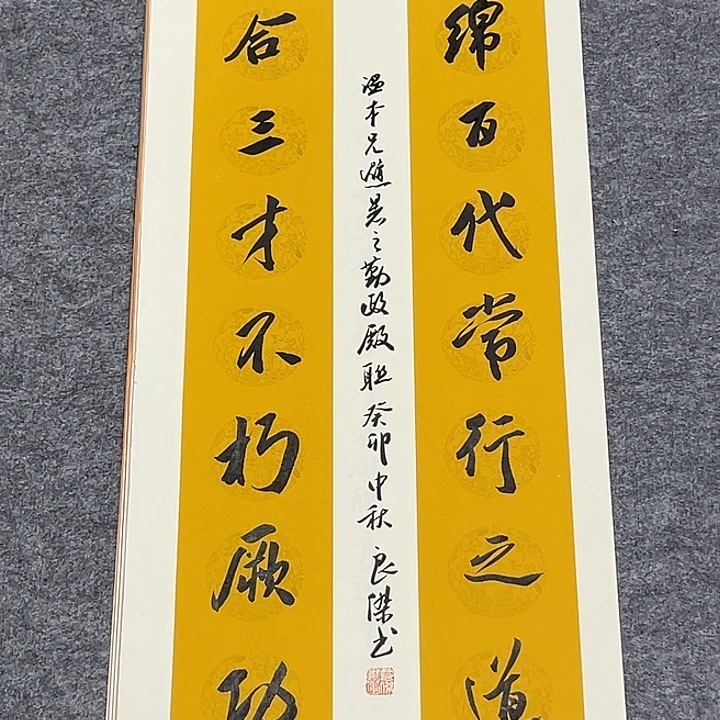 绵百代常行之道
合三才不朽厥功
温本兄撰景之勤政殿联癸卯中秋良杰书